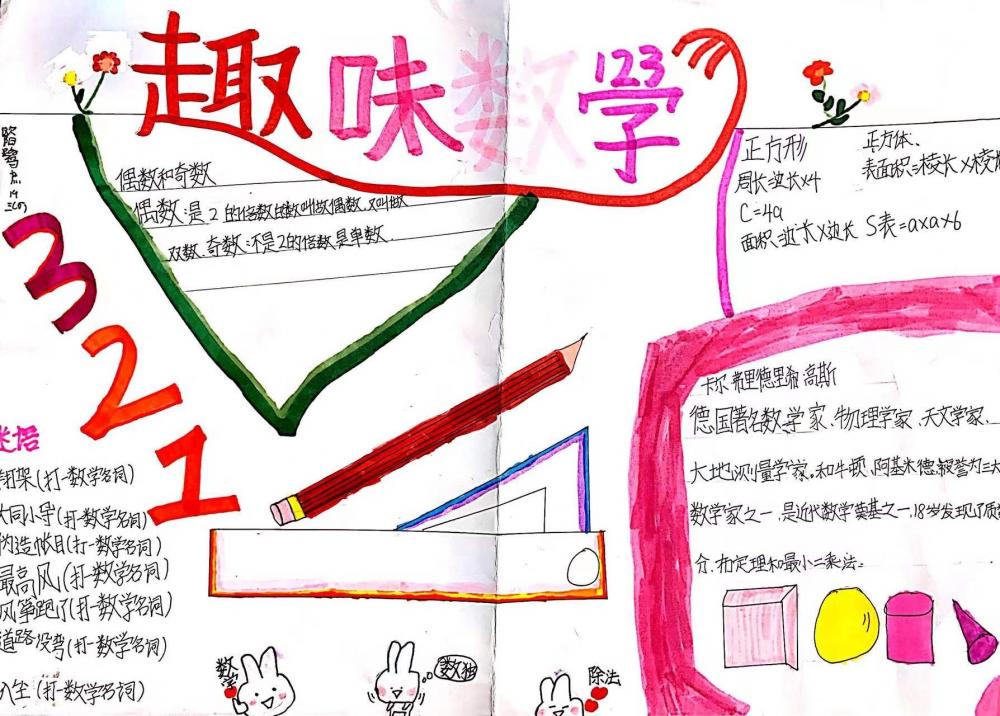 趣味数学
123
偶数和奇数
偶数:是2的倍数的数叫做偶数,又叫做
双数.奇数:不是2的倍数是单数.
正方形
周长:边长×4
C=4a
面积:边长×边长
正方体:
表面积=棱长×棱
S表=a×a×6
3
2
1
卡尔·弗里德里希·高斯
德国著名数学家、物理学家、天文学家、
大地测量学家,和牛顿、阿基米德被誉为三大
数学家之一,是近代数学奠基之一,18岁发现了质
分布定理和最小二乘法.
架(打一数学名词)
大同小导(打一数学名词)
造帐目(打一数学名词)
最高风(打一数学名词)
风筝跑了(打一数学名词)
道路没弯(打一数学名词)
(打一数学名词)
数学
数独
除法